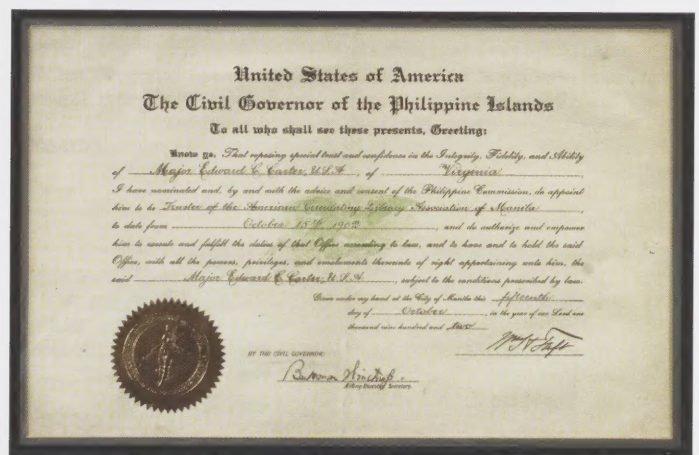 United States of America
The Civil Governor of the Philippine Islands
To all who shall see these presents, Greeting:
Know ye, That reposing special trust and confidence in the Integrity, Fidelity, and Ability
of Major Edward C. Carter, U.S.A., of Virginia
I have nominated and, by and with the advice and consent of the Philippine Commission, do appoint
him to be Trustee of the American Circulating Library Association of Manila
to date from October 15th 1902, and do authorize and empower
him to execute and fulfill the duties of that Office according to law, and to have and to hold the said
Office, with all the powers, privileges, and emoluments thereunto of right appertaining unto him, the
said Major Edward C. Carter, U.S.A., subject to the conditions prescribed by law.
Given under my hand at the City of Manila this fifteenth
day of October, in the year of our Lord one
thousand nine hundred and two
Wm H Taft
BY THE CIVIL GOVERNOR:
Secretary.